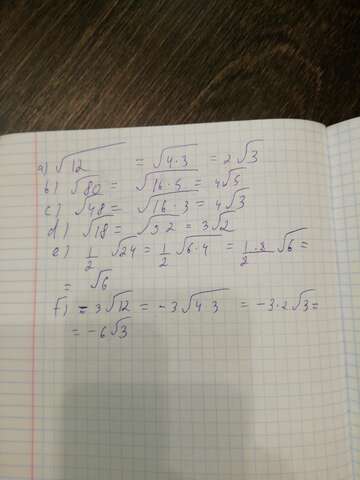 a) √12 = √4·3 = 2√3
b) √80 = √16·5 = 4√5
c) √48 = √16·3 = 4√3
d) √18 = √9·2 = 3√2
e) 1/2 √24 = 1/2 √6·4 = 1·2/2 √6 =
= √6
f) -3√12 = -3√4·3 = -3·2√3 =
= -6√3